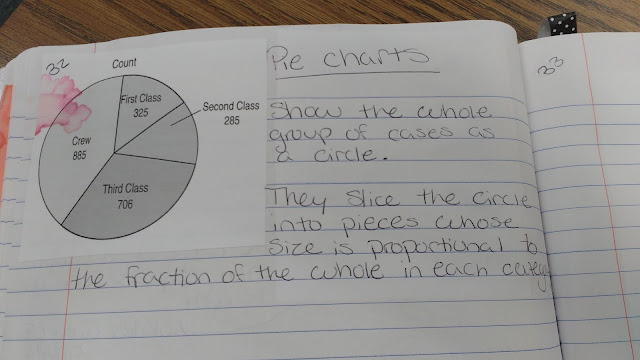 32
Count
First Class
325
Second Class
285
Crew
885
Third Class
706
Pie charts
Show the whole
group of cases as
a circle.
They slice the circle
into pieces whose
size is proportional to
the fraction of the whole in each
33